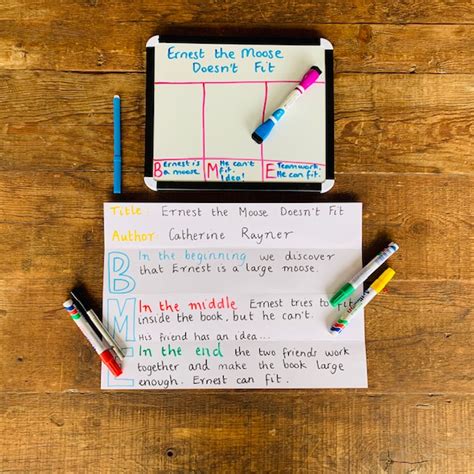 Ernest the Moose
Doesn't Fit
B Ernest is
a moose.
M He can't
fit.
Idea!
E Teamwork.
He can fit.
Title: Ernest the Moose Doesn't Fit
Author: Catherine Rayner
B In the beginning we discover
that Ernest is a large moose.
M In the middle Ernest tries to
inside the book, but he can't.
His friend has an idea...
E In the end the two friends work
together and make the book large
enough. Ernest can fit.